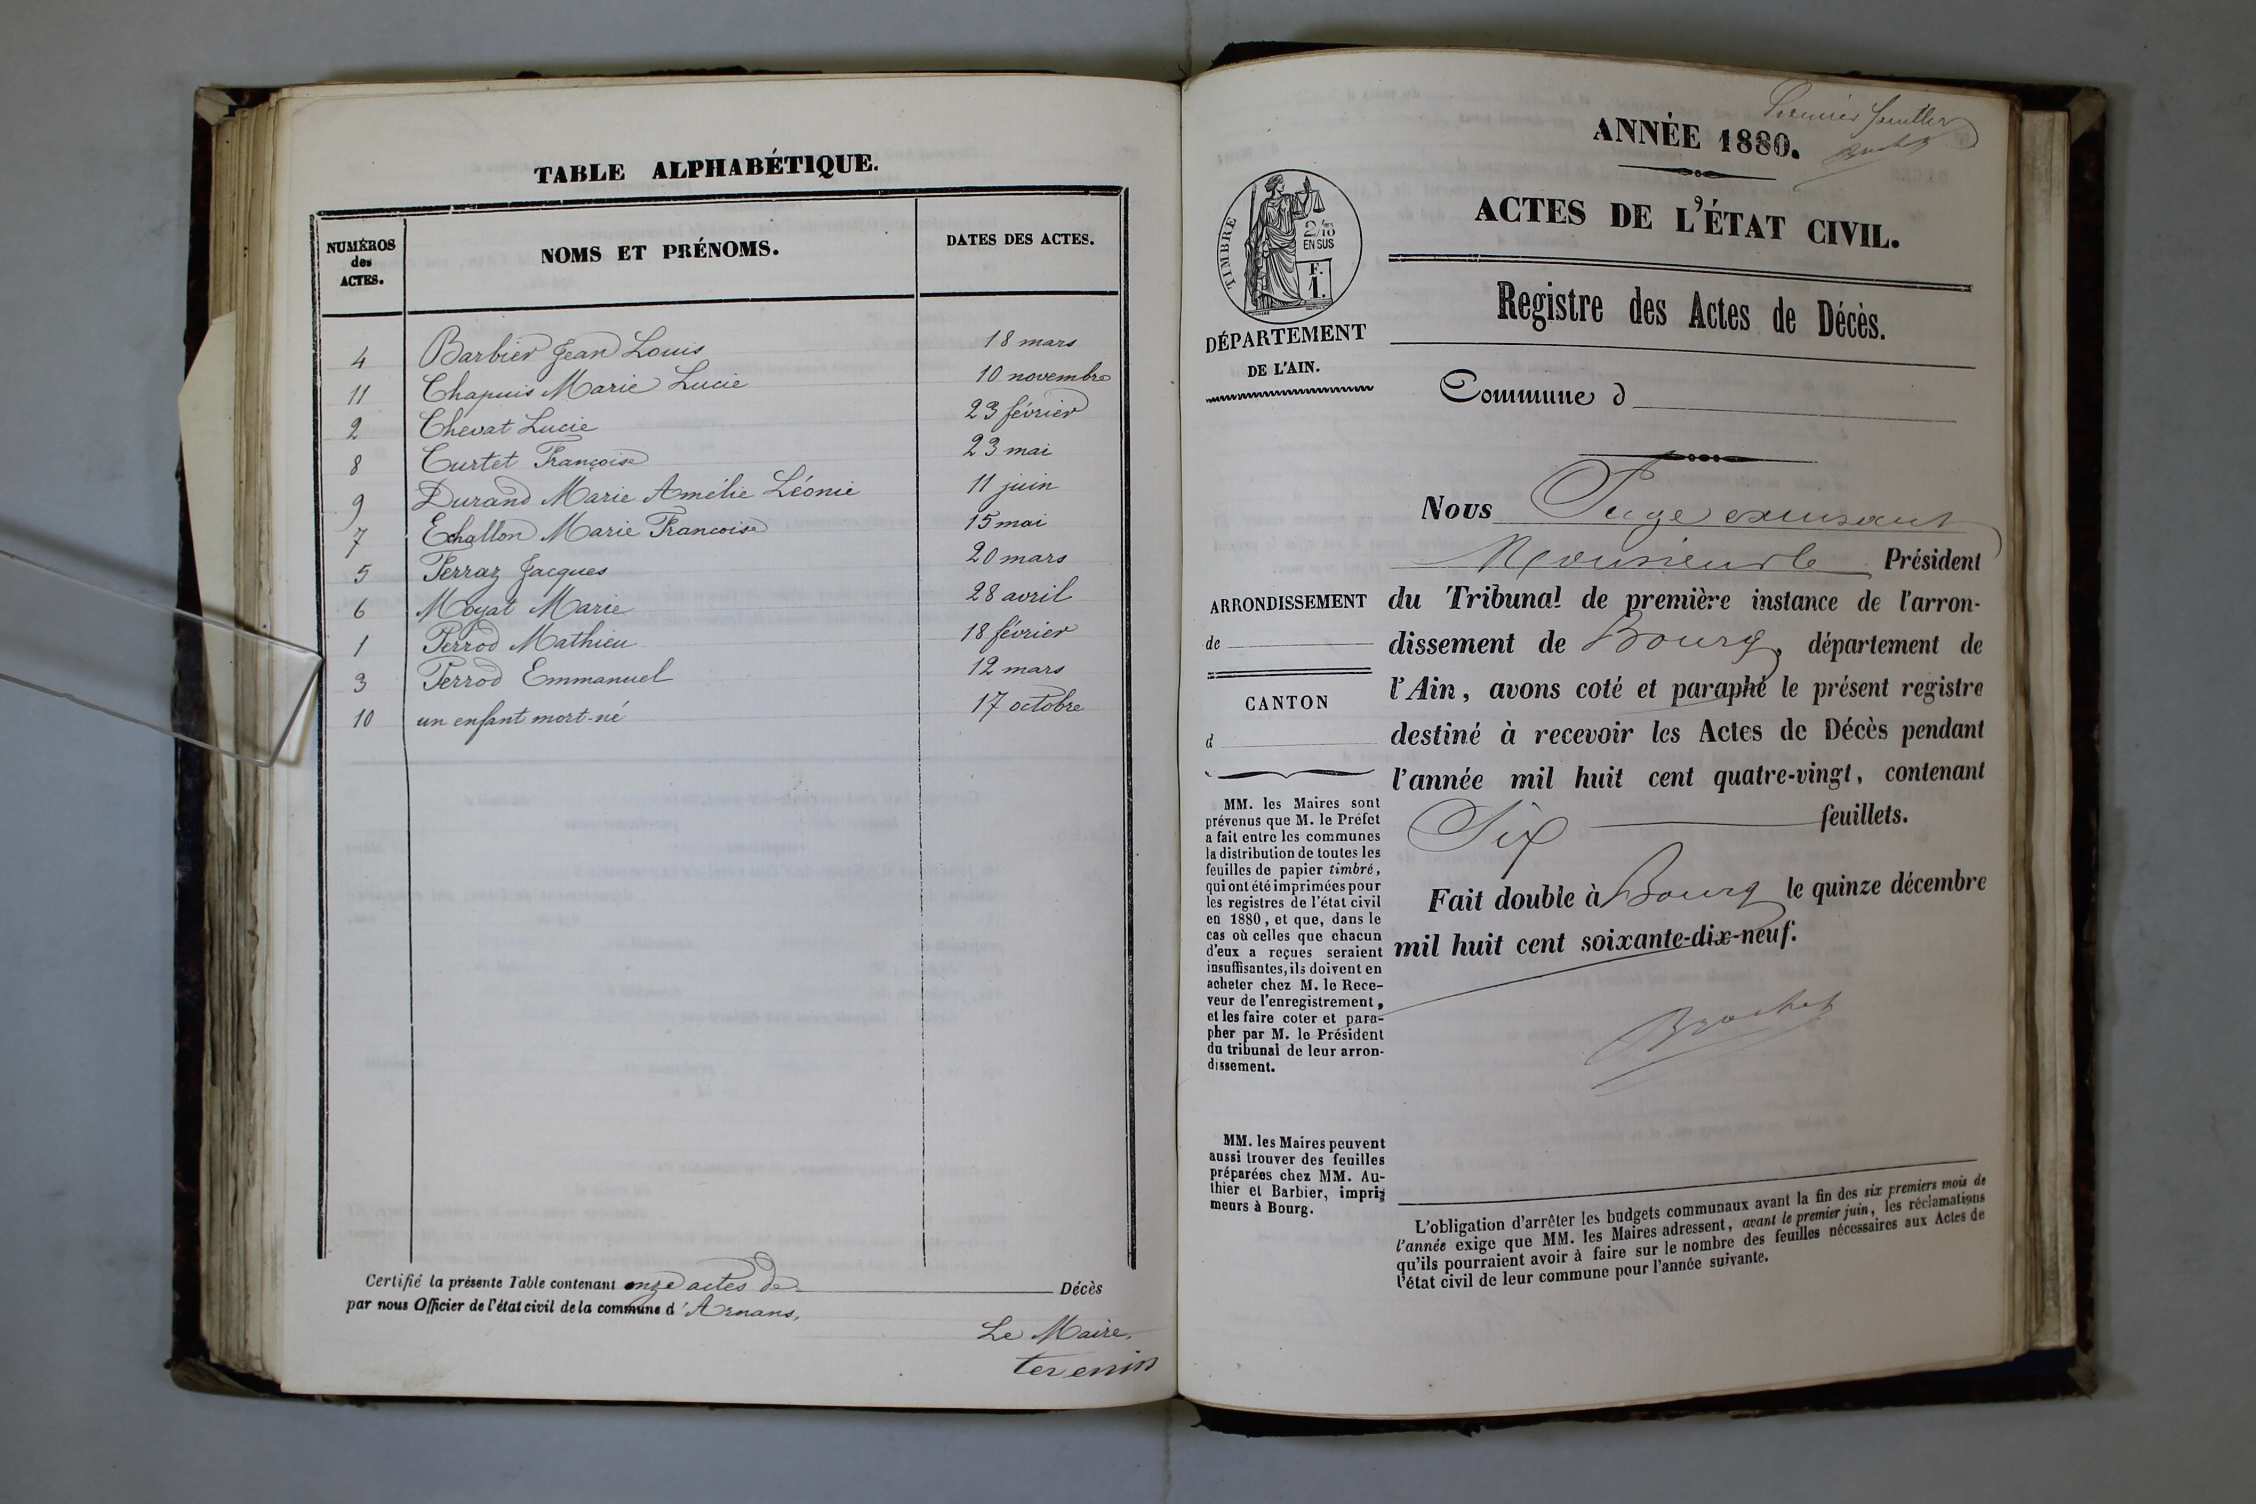 TABLE ALPHABÉTIQUE.
NUMÉROS des ACTES. NOMS ET PRÉNOMS. DATES DES ACTES.
4 Barbier Jean Louis 18 mars
11 Chapuis Marie Lucie 10 novembre
2 Chevat Lucie 23 février
8 Curtet Françoise 23 mai
9 Durand Marie Amélie Léonie 11 juin
7 Echallon Marie Francoise 15 mai
5 Ferraz Jacques 20 mars
6 Moyat Marie 28 avril
1 Perrod Mathieu 18 février
3 Perrod Emmanuel 12 mars
10 un enfant mort-né 17 octobre
Certifié la présente Table contenant onze actes de Décès
par nous Officier de l'état civil de la commune d'Arnans,
Le Maire,
terenin
Premier feuillet
Brochet
ANNÉE 1880.
ACTES DE L'ÉTAT CIVIL.
TIMBRE
2/10
EN SUS
F.
1.
DÉPARTEMENT
DE L'AIN.
Registre des Actes de Décès.
Commune d
Nous Juge
Monsieur le Président
du Tribunal de première instance de l'arron-
dissement de Bourg, département de
l'Ain, avons coté et paraphé le présent registre
destiné à recevoir les Actes de Décès pendant
l'année mil huit cent quatre-vingt, contenant
Six feuillets.
Fait double à Bourg le quinze décembre
mil huit cent soixante-dix-neuf.
Brochet
ARRONDISSEMENT
de
CANTON
d
MM. les Maires sont
prévenus que M. le Préfet
a fait entre les communes
la distribution de toutes les
feuilles de papier timbré,
qui ont été imprimées pour
les registres de l'état civil
en 1880, et que, dans le
cas où celles que chacun
d'eux a reçues seraient
insuffisantes, ils doivent en
acheter chez M. le Rece-
veur de l'enregistrement,
et les faire coter et para-
pher par M. le Président
du tribunal de leur arron-
dissement.
MM. les Maires peuvent
aussi trouver des feuilles
préparées chez MM. Au-
thier et Barbier, impri-
meurs à Bourg.
L'obligation d'arrêter les budgets communaux avant la fin des six premiers mois de
l'année exige que MM. les Maires adressent, avant le premier juin, les réclamations
qu'ils pourraient avoir à faire sur le nombre des feuilles nécessaires aux Actes de
l'état civil de leur commune pour l'année suivante.